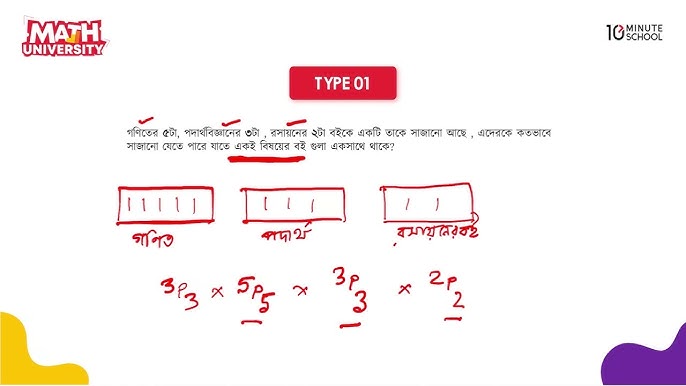 MATH
UNIVERSITY
10 MINUTE
SCHOOL
TYPE 01
গণিতের ৫টা, পদার্থবিজ্ঞানের ৩টা , রসায়নের ২টা বইকে একটি তাকে সাজানো আছে , এদেরকে কতভাবে
সাজানো যেতে পারে যাতে একই বিষয়ের বই গুলা একসাথে থাকে?
গণিত পদার্থ রসায়নের বই
3P3 × 5P5 × 3P3 × 2P2